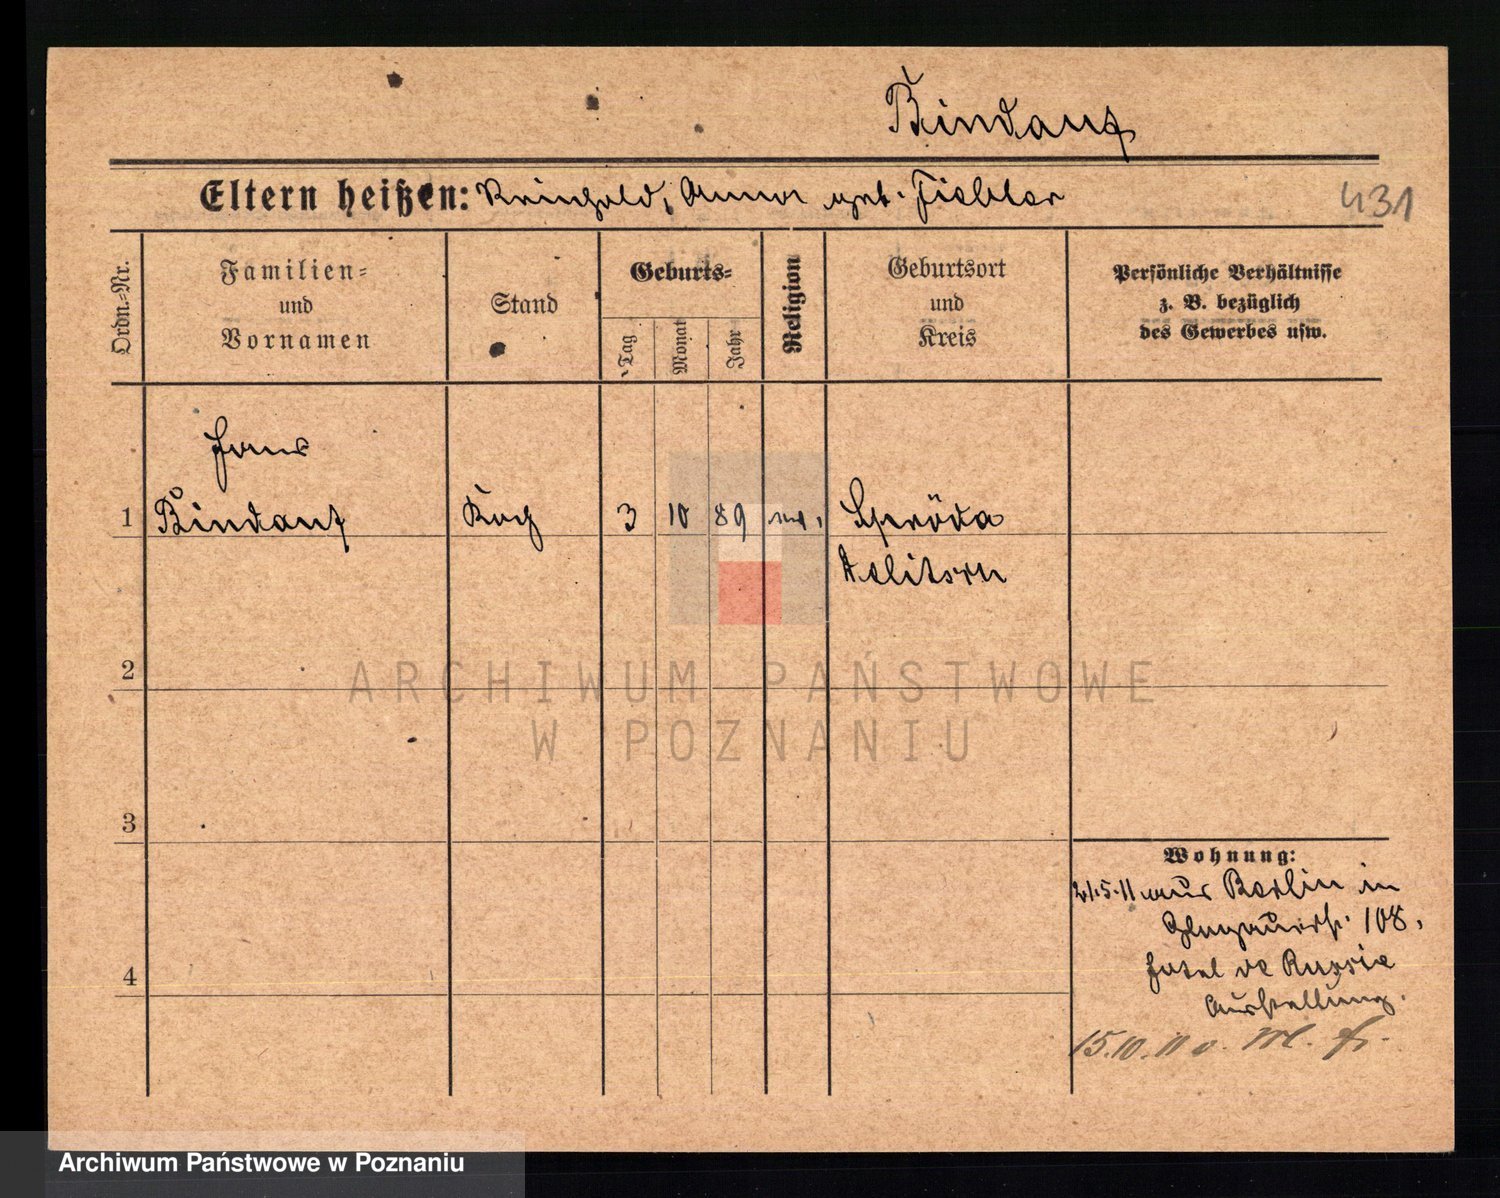 Bindauf
Eltern heißen: Reinhold, Anna geb. Fiebler
431
Ordn.-Nr.
Familien-
und
Vornamen
Stand
Geburts-
Tag
Monat
Jahr
Religion
Geburtsort
und
Kreis
Persönliche Verhältnisse
z. B. bezüglich
des Gewerbes usw.
Hans
1 Bindauf Koch 3 10 89 ev. Spröda
Delitsch
2
3
4
Wohnung:
21.5.11 aus Berlin in
Glogauerstr. 108,
Hotel de Russie
Ausstellung.
15.10.11 v.
ARCHIWUM PAŃSTWOWE
W POZNANIU
Archiwum Państwowe w Poznaniu